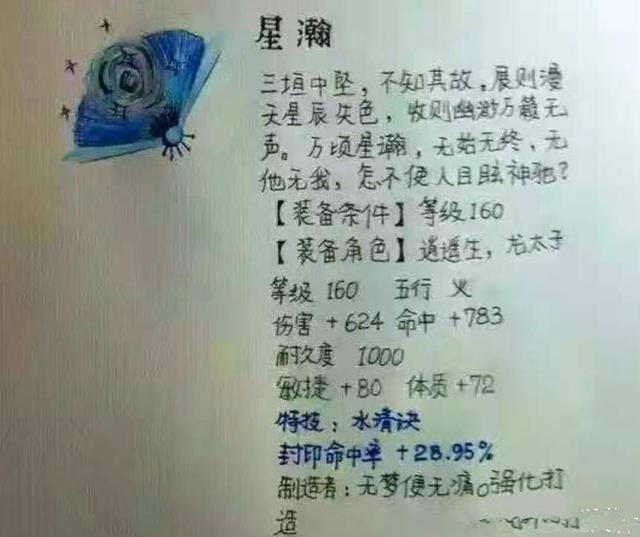 星瀚
三垣中坠，不知其故。展则漫
天星辰失色，收则幽渺万籁无
声。万顷星瀚，无始无终，无
他无我，怎不使人目眩神驰？
【装备条件】等级160
【装备角色】逍遥生，龙太子
等级 160 五行 火
伤害 +624 命中 +783
耐久度 1000
敏捷 +80 体质 +72
特技：水清诀
封印命中率 +28.95%
制造者：无梦便无痛。强化打
造